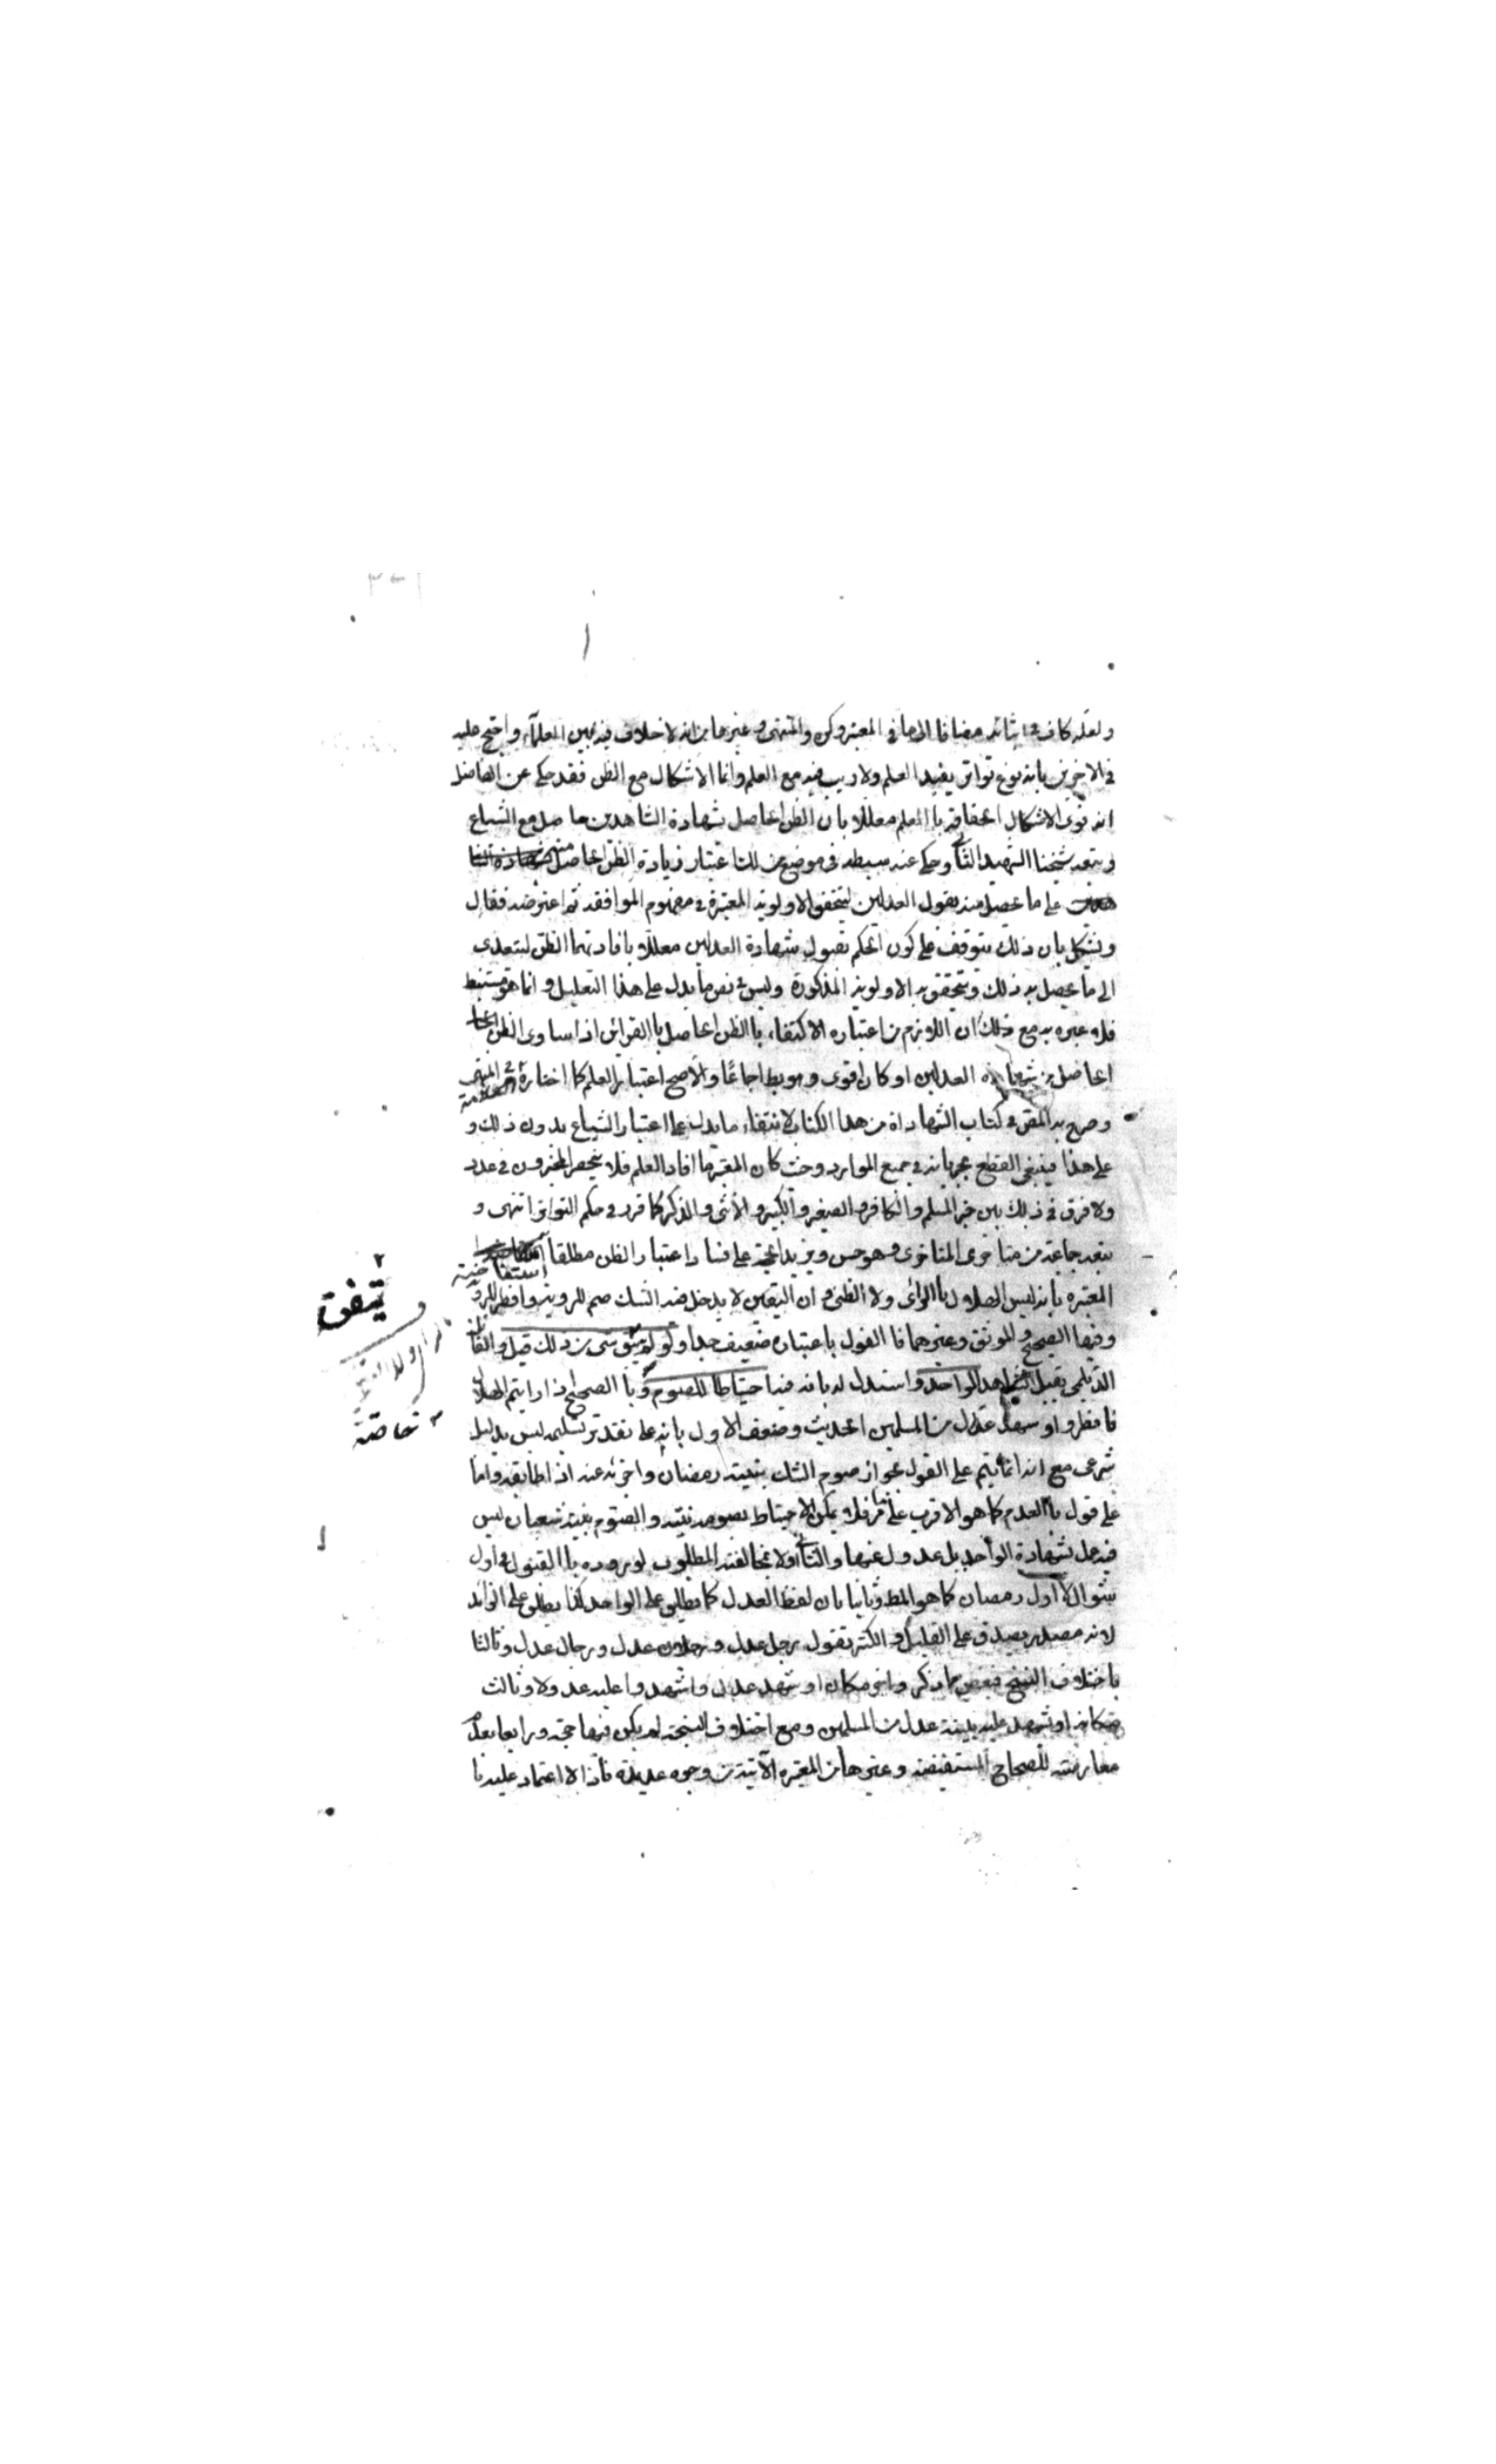 ولعله كاف في اثباته مضافا الى ما في المعتبر وكره والمنتهى وغيرها من انه لا خلاف فيه بين العلمآء واحتج عليه
في الاخرين بانه نوع تواتر يفيد العلم ولا ريب فيه مع العلم وانما الاشكال مع الظن فقد حكى عن الفاضل
انه قوى الاشكال الحاقا له باالعلم معللا بان الظن الحاصل بشهادة الشاهدين حاصل مع الشياع
وتبعه شيخنا الشهيد الثاني وحكى عنه سبطه في موضع من لك اعتبار زيادة الظن الحاصل منه
على ما يحصل منه بقول العدلين ليتحقق الاولوية المعتبرة في مفهوم الموافقة ثم اعترضه فقال
ويشكل بان ذلك يتوقف على كون الحكم بقبول شهادة العدلين معللا بافادتهما الظن ليتعدى
الى ما يحصل به ذلك ويتحقق به الاولوية المذكورة وليس في نص ما يدل على هذا التعليل وانما هو مستنبط
فلا عبرة به مع ذلك ان اللازم من اعتباره الاكتفاء باالظن الحاصل باالقرائن اذا ساوى الظن
الحاصل من شهادة العدلين او كان اقوى وهو بط اجماعًا والاصح اعتبار العلم كما اختاره العلامة في المنتهى
وصرح به المص في كتاب الشهاداة من هذا الكتاب لانتفاء ما يدل على اعتبار الشياع بدون ذلك و
على هذا فينبغي القطع بجريانه في جميع الموارد وحيث كان المعتبر ما افاد العلم فلا ينحصر المخبرون في عدد
ولا فرق في ذلك بين خبر المسلم والكافر والصغير والكبير والانثى والذكر كما قرر في حكم التواتر انتهى و
تبعه جماعة من متاخرى المتاخرى وهو حسن ويزيد الحجة على فساد اعتبار الظن مطلقا استفاضة
المعتبره بانه ليس الهلال باالرائ ولا الظني وان اليقين لا يدخل فيه الشك صم للروية وافطر للروية
وفيها الصحيح والموثق وغيرهما فا القول باعتباره ضعيف جدا ولو لم يتفق شى من ذلك قيل والقائل
الديلمى يقبل الشاهد الواحد واستدل له بانه فيه احتياطا للصوم خاصة وبا الصحيح اذا رايتم الهلال
فافطروا او شهد عدل من المسلمين الحديث وضعف الاول بانه على تقدير تسليمه ليس بدليل
شرعى مع انه انما يتم على القول بجواز صوم الشك بنية رمضان واجزئه عنه اذا طابقه واما
على قول باالعدم كما هو الاقرب على ما مر فلا يمكن الاحتياط بصومه بنيته والصوم بنية شعبان ليس
فيه عمل بشهادة الواحد بل عدول عنها والثاني اولا بمخالفته المطلوب لوروده باالقبول في اول
شوال لا اول رمضان كما هو المط وثانيا بان لفظ العدل كما يطلق على الواحد كذا يطلق على الزائد
لانه مصدر يصدق على القليل والكثير تقول رجل عدل ورجلان عدل ورجال عدل وثالثا
باختلاف النسخ فبعض كما ذكر واخر مكان او شهد عدل واشهدوا عليه عدولا وثالث
مكانه او تشهد عليه بينة عدل من المسلمين ومع اختلاف النسخة لم يكن فيها حجة ورابعا بعدم
معارضته للصحاح المستفيضة وغيرها من المعتبره الآتية من وجوه عديدة فاذا لا اعتماد عليه فا
يتفق
خاصة